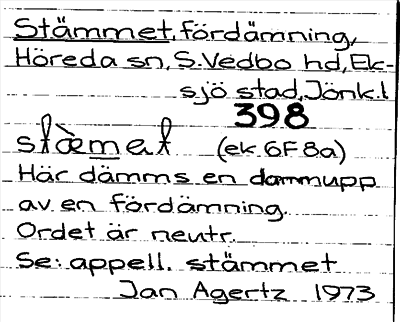 Stämmet, fördämning,
Höreda sn, S. Vedbo hd, Ek-
sjö stad, Jönk. l
398
stæmet (ek 6F8a)
Här dämms en damm upp
av en fördämning.
Ordet är neutr.
Se: appell. stämmet
Jan Agertz 1973